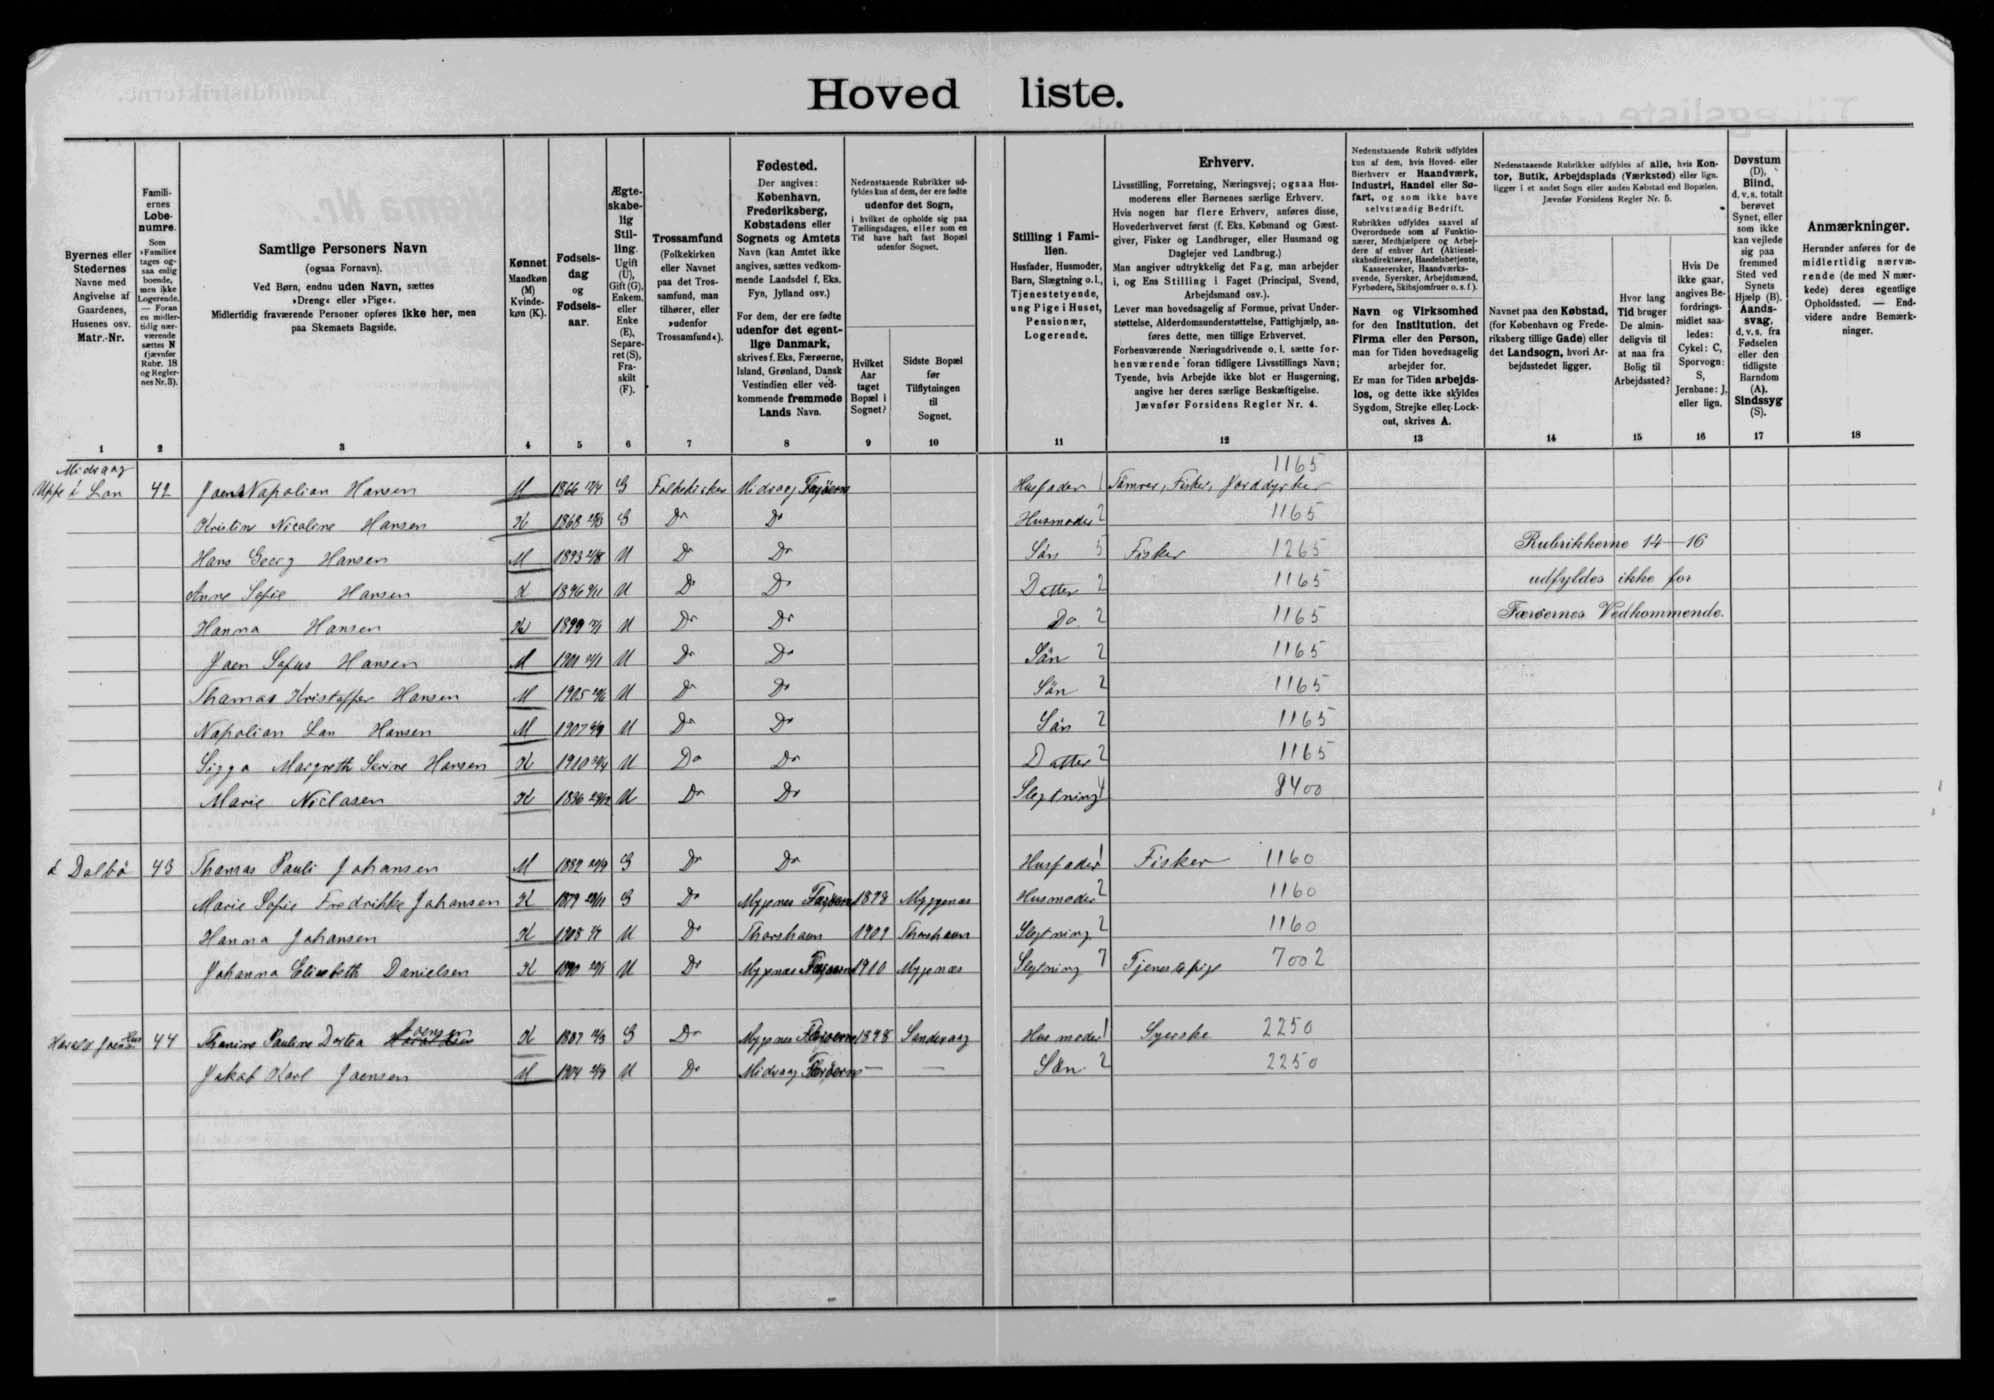 Hoved liste.
Byernes eller Stedernes Navne med Angivelse af Gaardenes, Husenes osv. Matr.-Nr.
Familiernes Løbenumre.
Som »Familie« tages ogsaa enlig boende, men ikke Logerende. — Foran en midlertidig nærværende sættes N (jævnfør Rubr. 18 og Regler Nr. 3).
Samtlige Personers Navn
(ogsaa Fornavn).
Ved Børn, endnu uden Navn, sættes
»Dreng« eller »Pige«.
Midlertidig fraværende Personer opføres ikke her, men
paa Skemaets Bagside.
Kønnet Mandkøn (M) Kvindekøn (K).
Fødselsdag og Fødselsaar.
Ægteskabelig Stilling. Ugift (U), Gift (G), Enkem. eller Enke (E), Separeret (S), Fraskilt (F).
Trossamfund
(Folkekirken eller Navnet paa det Trossamfund, man tilhører, eller »udenfor Trossamfund«).
Fødested.
Der angives:
København, Frederiksberg, Købstadens eller Sognets og Amtets Navn (kan Amtet ikke angives, sættes vedkommende Landsdel f. Eks. Fyn, Jylland osv.)
For dem, der ere fødte udenfor det egentlige Danmark, skrives f. Eks. Færøerne, Island, Grønland, Dansk Vestindien eller vedkommende fremmede Lands Navn.
Nedenstaaende Rubrikker udfyldes kun af dem, der ere fødte udenfor det Sogn, i hvilket de opholde sig paa Tællingsdagen, eller som en Tid have haft fast Bopæl udenfor Sognet.
Hvilket Aar taget Bopæl i Sognet?
Sidste Bopæl før Tilflytningen til Sognet.
Stilling i Familien.
Husfader, Husmoder, Barn, Slægtning o.l., Tjenestetyende, ung Pige i Huset, Pensionær, Logerende.
Erhverv.
Livsstilling, Forretning, Næringsvej; ogsaa Husmoderens eller Børnenes særlige Erhverv.
Hvis nogen har flere Erhverv, anføres disse, Hovederhvervet først (f. Eks. Købmand og Gæstgiver, Fisker og Landbruger, eller Husmand og Daglejer ved Landbrug.)
Man angiver udtrykkelig det Fag, man arbejder i, og Ens Stilling i Faget (Principal, Svend, Arbejdsmand osv.).
Lever man hovedsagelig af Formue, privat Understøttelse, Alderdomsunderstøttelse, Fattighjælp, anføres dette, men tillige Erhvervet.
Forhenværende Næringsdrivende o. l. sætte forhenværende foran tidligere Livsstillings Navn; Tyende, hvis Arbejde ikke blot er Husgerning, angive her deres særlige Beskæftigelse.
Jævnfør Forsidens Regler Nr. 4.
Nedenstaaende Rubrik udfyldes kun af dem, hvis Hoved- eller Bierhverv er Haandværk, Industri, Handel eller Søfart, og som ikke have selvstændig Bedrift.
Rubrikken udfyldes saavel af Overordnede som af Funktionærer, Medhjælpere og Arbejdere af enhver Art (Aktieselskabsdirektører, Handelsbetjente, Kasserersker, Haandværkssvende, Syersker, Arbejdsmænd, Fyrbødere, Skibsjomfruer o. s. f.).
Navn og Virksomhed for den Institution, det Firma eller den Person, man for Tiden hovedsagelig arbejder for.
Er man for Tiden arbejdsløs, og dette ikke skyldes Sygdom, Strejke eller Lockout, skrives A.
Nedenstaaende Rubrikker udfyldes af alle, hvis Kontor, Butik, Arbejdsplads (Værksted) eller lign. ligger i et andet Sogn eller anden Købstad end Bopælen.
Jævnfør Forsidens Regler Nr. 5.
Navnet paa den Købstad, (for København og Frederiksberg tillige Gade) eller det Landsogn, hvori Arbejdsstedet ligger.
Hvor lang Tid bruger De almindeligvis til at naa fra Bolig til Arbejdssted?
Hvis De ikke gaar, angives Befordringsmidlet saaledes: Cykel: C, Sporvogn: S, Jernbane: J, eller lign.
Døvstum (D), Blind, d. v. s. totalt berøvet Synet, eller som ikke kan vejlede sig paa fremmed Sted ved Synets Hjælp (B). Aandssvag, d. v. s. fra Fødselen eller den tidligste Barndom (A). Sindssyg (S).
Anmærkninger.
Herunder anføres for de midlertidig nærværende (de med N mærkede) deres egentlige Opholdssted. — Endvidere andre Bemærkninger.
1 2 3 4 5 6 7 8 9 10 11 12 13 14 15 16 17 18
Midvaag 1165
Uppe i Lon 42 Joen Napolian Hansen M 1866 G Folkekirken Midvaag Færöerne Husfader 1 Tömrer, Fisker, Jorddyrker
Kristine Nicoline Hansen K 1868 G Do Do Husmoder 2 1165
Hans Georg Hansen M 1893 U Do Do Sön 5 Fisker 1265 Rubrikkerne 14—16
Anne Sofie Hansen K 1896 U Do Do Datter 2 1165 udfyldes ikke for
Hanna Hansen K 1899 U Do Do Do 2 1165 Færøernes Vedkommende.
Joen Sofus Hansen M 1901 U Do Do Sön 2 1165
Thamas Kristoffer Hansen M 1905 U Do Do Sön 2 1165
Napolian Lan Hansen M 1907 U Do Do Sön 2 1165
Sigga Margreth Serine Hansen K 1910 U Do Do Datter 2 1165
Marie Niclasen K 1836 U Do Do Slegtning 8400
i Dalbö 43 Thamas Pauli Johansen M 1882 G Do Do Husfader 1 Fisker 1160
Marie Sofie Fredrikke Johansen K 1879 G Do Mygenes Færöerne 1898 Myggenæs Husmoder 2 1160
Hanna Johansen K 1908 U Do Thorshavn 1909 Thorshavn Slegtning 2 1160
Johanna Elisabeth Danielsen K 1890 U Do Mygenæs Færöerne 1910 Mygenæs Slegtning 7 Tjenestepige 7002
Harald Joens Hus 44 Thamine Pauline Dortea Joensen K 1867 G Do Mygenes Færöerne 1898 Sandevaag Husmoder 1 Syerske 2250
Jakob Karl Joensen M 1904 U Do Midvaag Færöerne — — Sön 2 2250